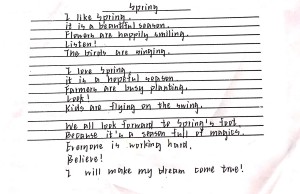 Spring
I like spring.
it is a beautiful season.
Flowers are happily smiling.
Listen!
The birds are singing.
I love spring.
it is a hopeful season
Farmers are busy planting.
Look!
Kids are flying on the swing.
We all look forward to spring's foot.
Because it's a season full of magics.
Everyone is working hard.
Believe!
I will make my dream come true!